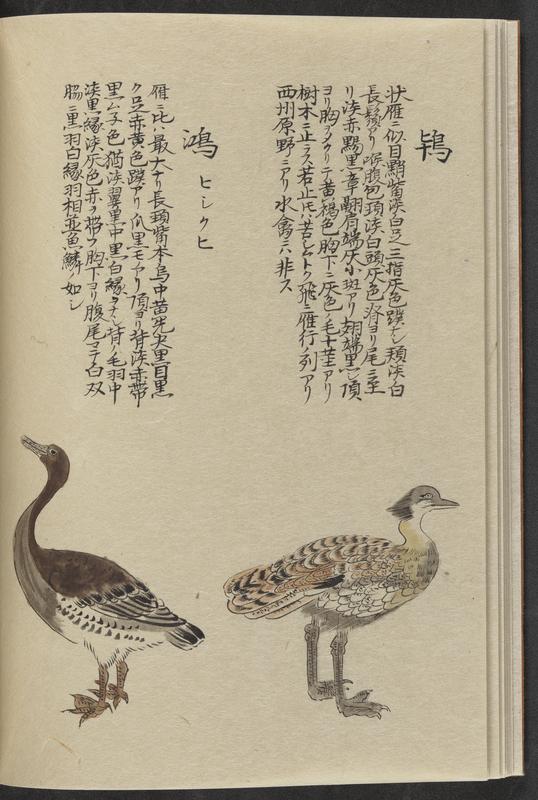 鴇
状雁ニ似目黝觜淡白足三指灰色蹼ナシ頬淡白
長鬚アリ喉腹匈頚淡白頭灰色脊ヨリ尾ニ至
リ淡赤黝黒章翺肩端灰小斑アリ翅端黒シ頂
ヨリ胸アタリテ黄褐色胸下ニ灰色ノ毛十茎アリ
樹木ニ止ラス若止レハ苦シムトク飛ニ雁行ノ列アリ
西州原野ニアリ水禽ニハ非ス
鴻 ヒシクヒ
雁ニ比ハ最大ナリ長頚觜本烏中黄先尖黒目黒
ク足赤黄色蹼アリ爪黒モアリ頂ヨリ背淡赤帯
黒ム子色猶淡翼黒中黒白縁ヲナス背ノ毛羽中
淡黒縁淡灰色赤ヲ帯フ胸下ヨリ腹尾マテ白双
脇ニ黒羽白縁羽相並魚鱗ノ如シ